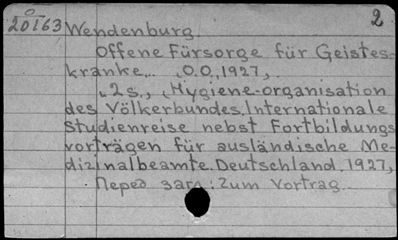 2
0
20163 Wendenburg.
Offene Fürsorge für Geistes-
kranke... O.O., 1927,
2 s., Hygiene-organisation
des Völkerbundes. Internationale
Studienreise nebst Fortbildungs
vorträgen für ausländische Me-
dizinalbeamte. Deutschland. 1927,
Перед загл.: Zum Vortrag